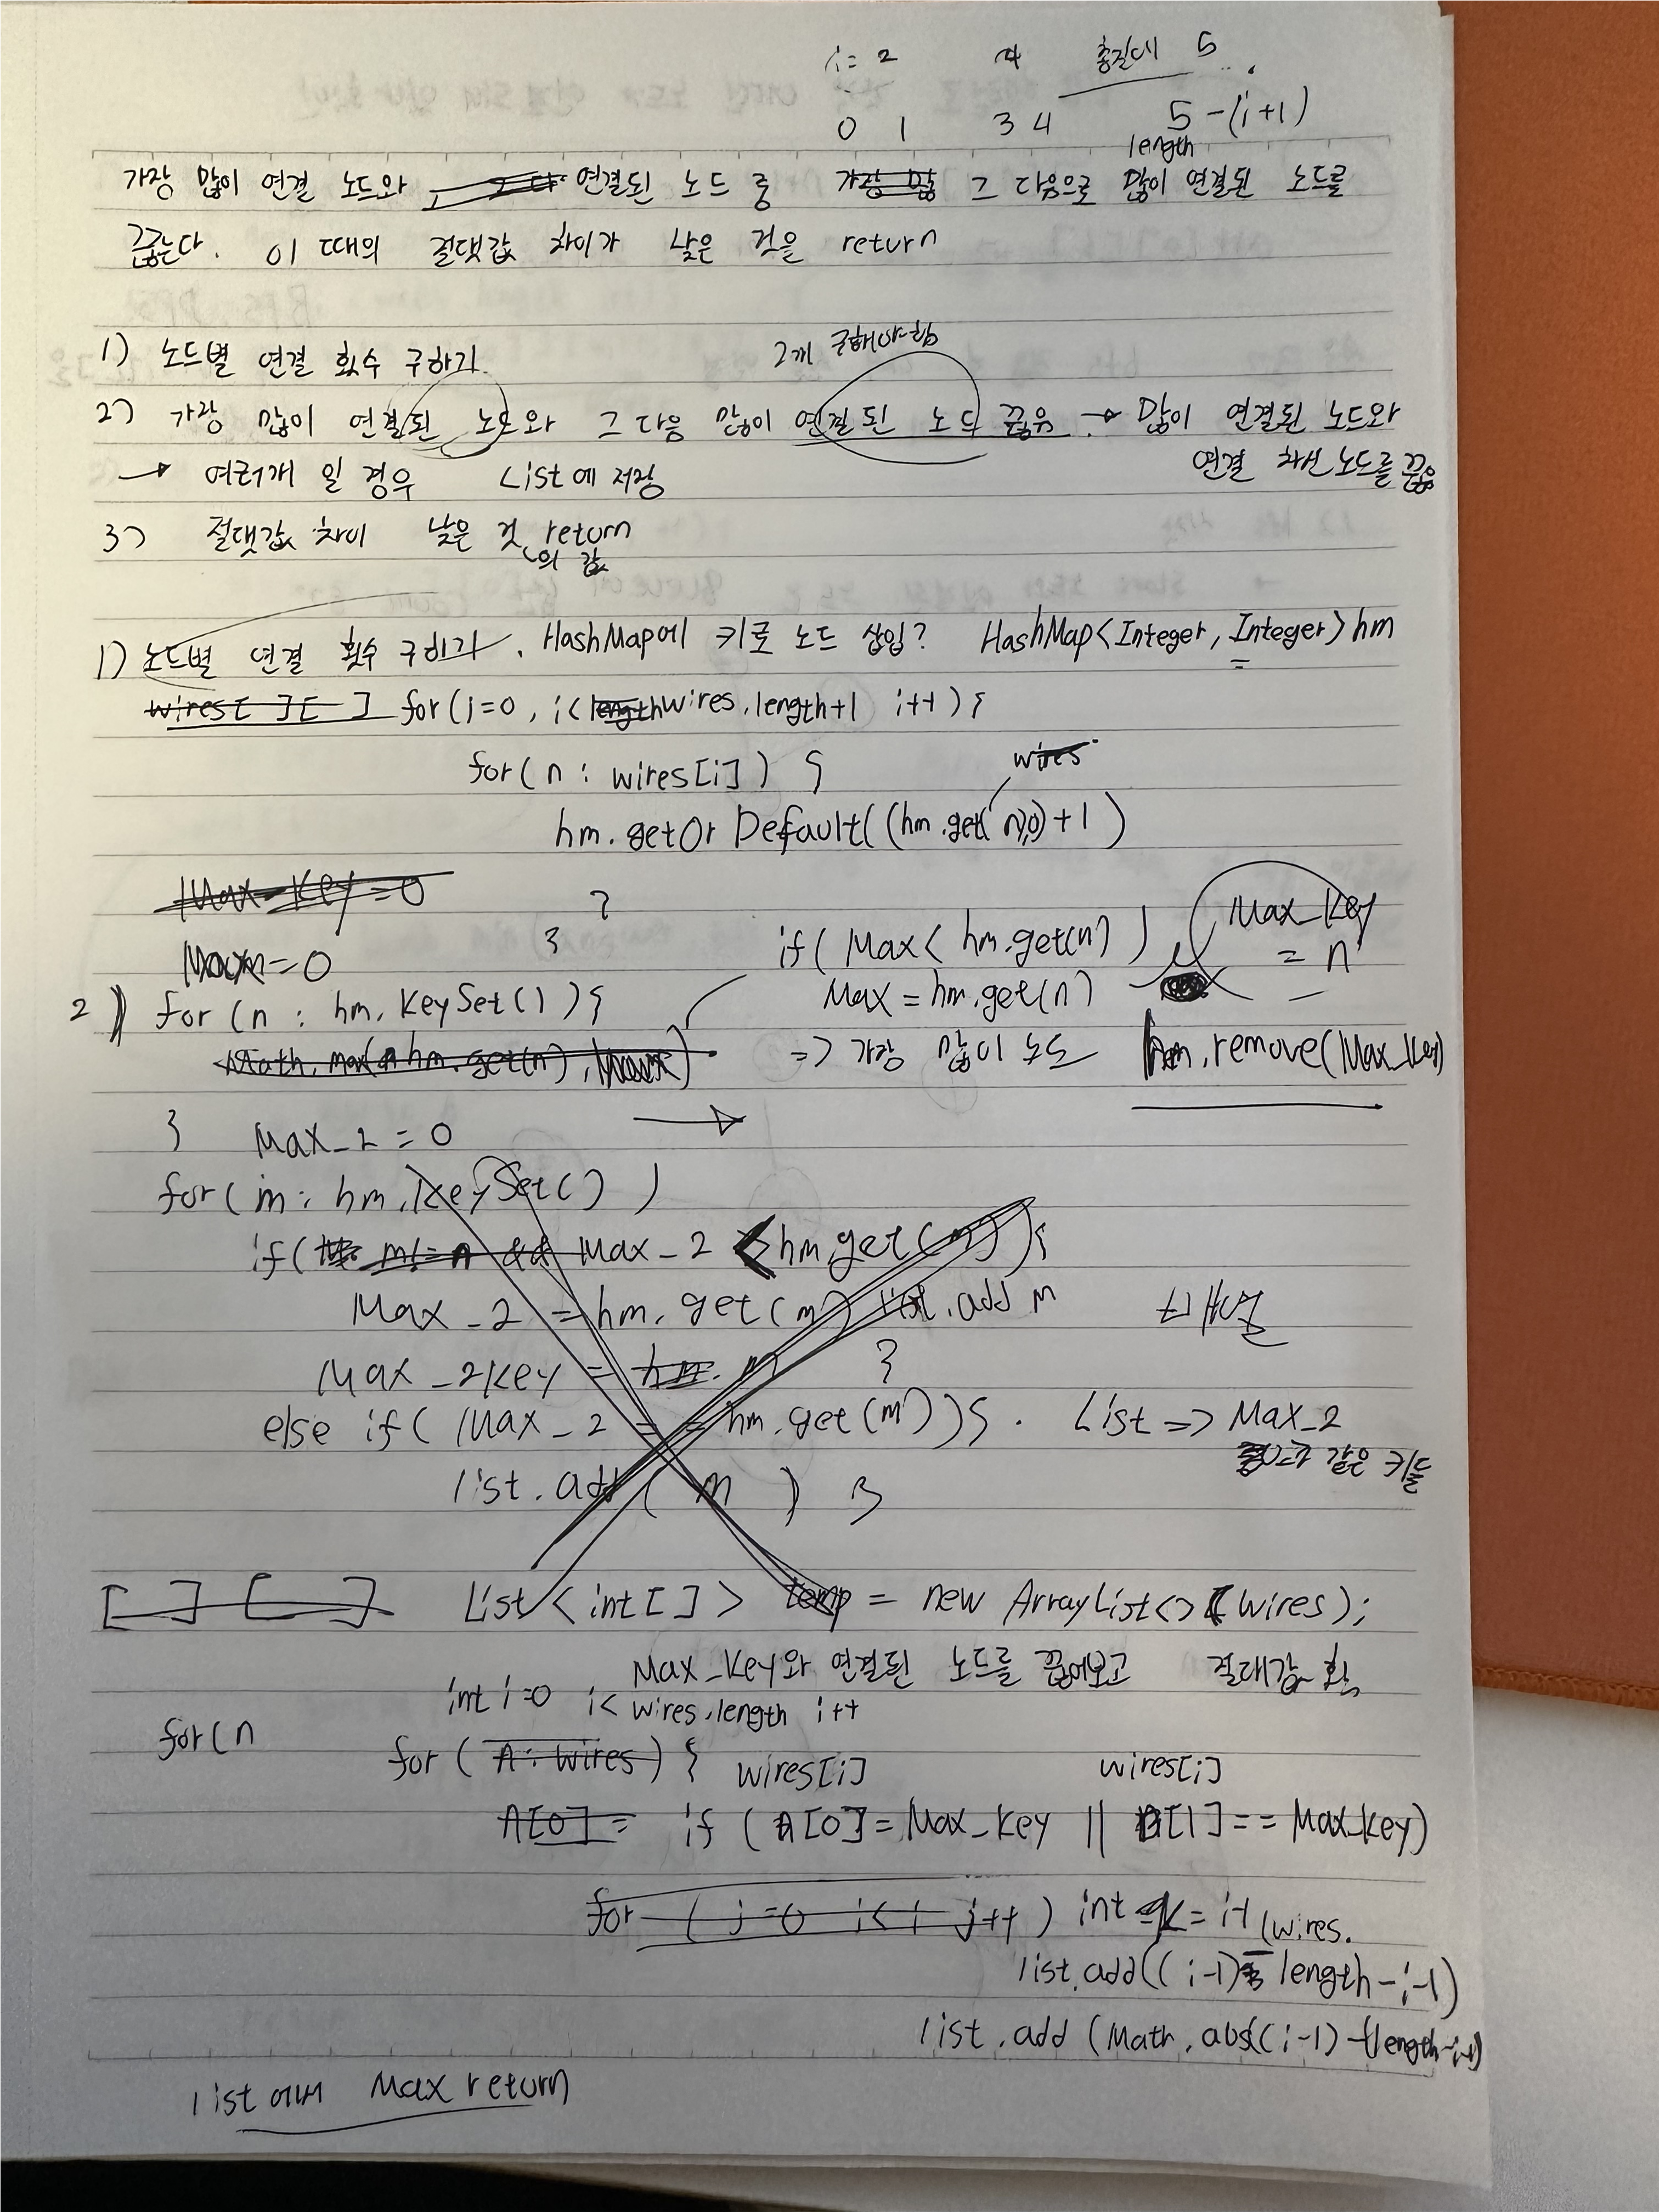 i= 2 4 총길이 5
0 1 3 4 5 -(i+1)
length
가장 많이 연결 노드와 연결된 노드 중 가장 많 그 다음으로 많이 연결된 노드를
끊는다. 이 때의 절댓값 차이가 낮은 것을 return
1) 노드별 연결 횟수 구하기
2개 구해야함
2) 가장 많이 연결된 노드와 그 다음 많이 연결된 노드 끊음 → 많이 연결된 노드와
연결 노드를 끊음
→ 여러개 일 경우 List에 저장
3) 절댓값 차이 낮은 것 return
의 값
1) 노드별 연결 횟수 구하기. HashMap에 키로 노드 삽입? HashMap<Integer, Integer> hm
wires[ ][ ] for(i=0, i<length wires.length+1 i++){
for(n : wires[i]) {
wires
hm.getOrDefault((hm.get(n),0)+1)
Max_Key=0
}
}
Max=0
if( Max< hm.get(n) ) Max_Key
= n
Max = hm.get(n)
2) for (n : hm.KeySet()){
Math.max(n hm.get(n), Max)
=> 가장 많이 노드 hm.remove(Max_Key)
} Max_2 = 0
for( m: hm.KeySet() )
if( m!=n && Max_2 < hm.get(m)){
Max_2 = hm.get(m) list.add m
Max_2Key = hm. m }
else if( Max_2 == hm.get(m)){ . List => Max_2
같은 키들
list.add( m ) }
[ ] [ ] List<int[]> temp = new ArrayList<>(wires);
Max_Key와 연결된 노드를 끊어보고
int i=0 i< wires.length i++
for(n
for( A: wires) { wires[i] wires[i]
A[0]= if (A[0]=Max_Key || [1]== Max_Key)
for ( j=0 i< i j++ ) int = i-1 (wires.
list.add((i-1)- length-i-1)
list.add(Math.abs((i-1)-(length-i-1)
list에서 Max return